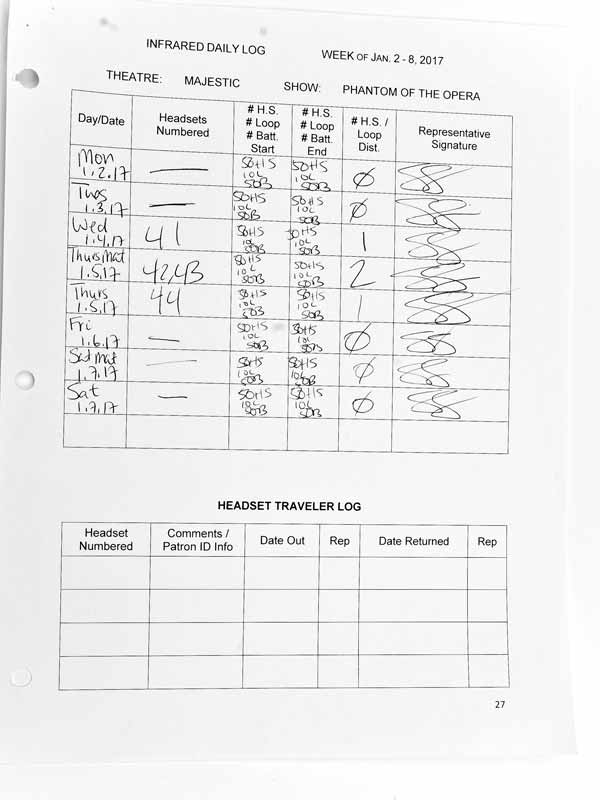 INFRARED DAILY LOG WEEK OF JAN. 2 - 8, 2017
THEATRE: MAJESTIC SHOW: PHANTOM OF THE OPERA
Day/Date Headsets Numbered # H.S. # Loop # Batt. Start # H.S. # Loop # Batt. End # H.S. / Loop Dist. Representative Signature
Mon 1.2.17 — 50HS 10L 50B 50HS 10L 50B Ø
Tues 1.3.17 — 50HS 10L 50B 50HS 10L 50B Ø
Wed 1.4.17 41 50HS 10L 50B 50HS 10L 50B 1
Thurs Mat 1.5.17 42,43 50HS 10L 50B 50HS 10L 50B 2
Thurs 1.5.17 44 50HS 10L 50B 50HS 10L 50B 1
Fri 1.6.17 — 50HS 10L 50B 50HS 10L 50B Ø
Sat Mat 1.7.17 — 50HS 10L 50B 50HS 10L 50B Ø
Sat 1.7.17 — 50HS 10L 50B 50HS 10L 50B Ø
HEADSET TRAVELER LOG
Headset Numbered Comments / Patron ID Info Date Out Rep Date Returned Rep
27